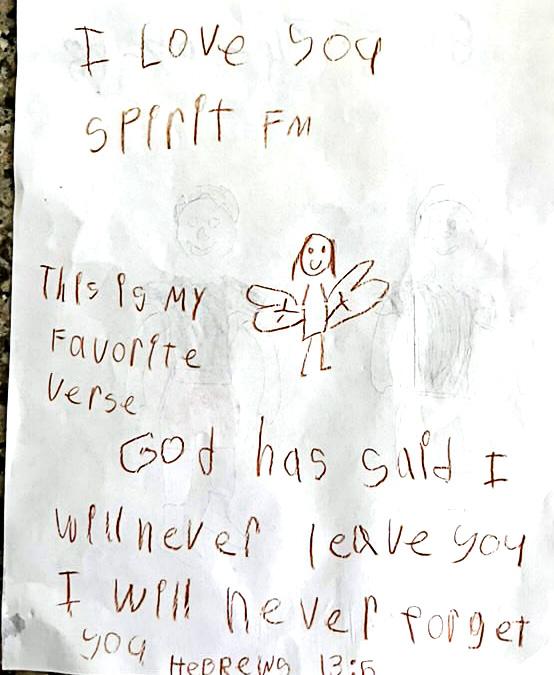 I Love you
spirit FM
This is my
Favorite
verse
God has said I
will never leave you
I will never forget
you
HEBREWS 13:5